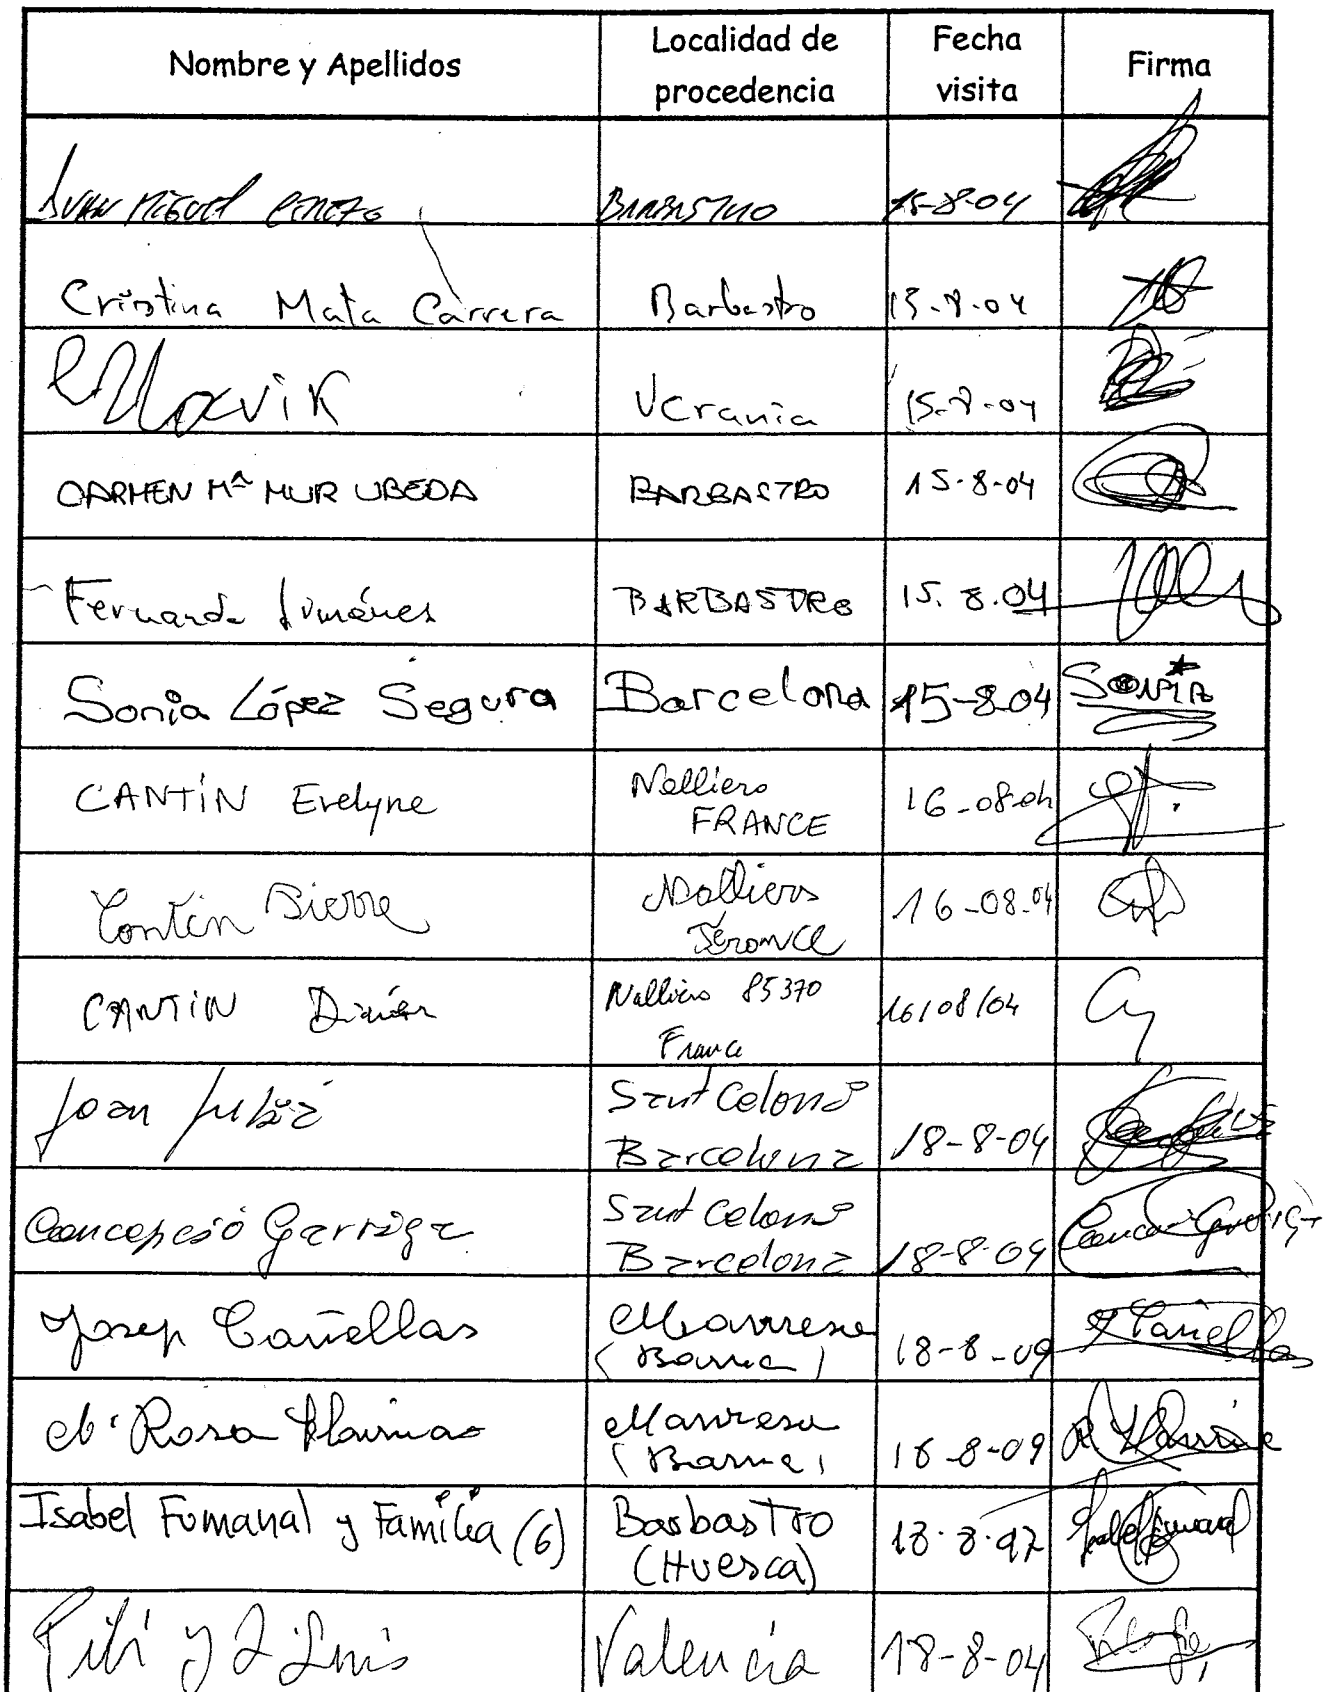 Nombre y Apellidos Localidad de procedencia Fecha visita Firma
JUAN MIGUEL BARBASTRO 15-8-04
Cristina Mata Carrera Barbastro 15-8-04
Ucrania 15-8-04
CARMEN Mª MUR UBEDA BARBASTRO 15-8-04
Fernando Jiménez BARBASTRO 15.8.04
Sonia López Segura Barcelona 15-8-04 Sonia
CANTIN Evelyne Nalliers FRANCE 16-08-04
Cantin Pierre Nalliers France 16-08-04
CANTIN Didier Nalliers 85370 France 16/08/04
Joan Jubià Sant Celoni Barcelona 18-8-04
Concepció Garriga Sant Celoni Barcelona 18-8-04
Josep Cañellas Manresa (Barna) 18-8-09 Cañellas
Mª Rosa Manresa (Barna) 18-8-09
Isabel Fumanal y Familia (6) Barbastro (Huesca) 18-8-97
Pili y J. Luis Valencia 18-8-04